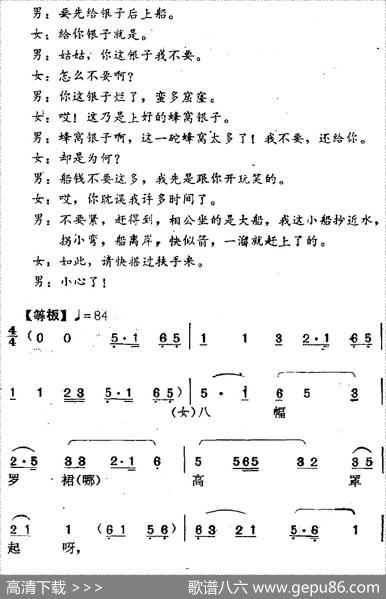 男：要先给银子后上船。
女：给你银子就是。
男：姑姑，你这银子我不要。
女：怎么不要啊？
男：你这银子烂了，蛮多窟窿。
女：哎！这乃是上好的蜂窝银子。
男：蜂窝银子啊，这一砣蜂窝太多了！我不要，还给你。
女：却是为何？
男：船钱不要这多，我先是跟你开玩笑的。
女：哎，你耽误我许多时间了。
男：不要紧，赶得到，相公坐的是大船，我这小船抄近水，
拐小弯，船离岸，快似箭，一溜就赶上了的。
女：如此，请快搭过扶手来。
男：小心了！
【等板】♩=84
4/4 (0 0 5·1 65 | 1 1 3 2·1 65
1 1 23 5·1 65) | 5· 1 6 5 3
(女)八 幅
2·5 33 2·1 6 | 5 565 32 35
罗 裙(哪) 高 罩
21 1 (61 56) | 63 21 5·6 1
起 呀，
高清下载 >>> 歌谱八六 www.gepu86.com